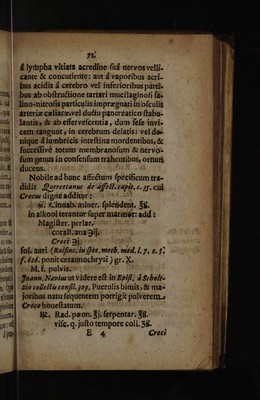 71.
á lympha vitiata acredine suâ nervos velli-
cante & concutiente: aut à vaporibus acri-
bus acidis á cerebro vel inferioribus parti-
bus ab obstructione tartari mucilaginosi sa-
lino-nitrosis particulis impragnati in osculis
arteriæ cæliacæ vel ductu pancreatico stabu-
lantis, & ab effervescentia, dum sese invi-
cem tangunt, in cerebrum delatis: vel de-
nique á lumbricis intestina mordentibus, &
successivè totum membranosum & nervo-
sum genus in consensum trahentibus, ortum
ducens.
Nobile ad hunc affectum specificum tra-
didit Quercetanus de affect. capit. c. 55. cui
Crocus digne additur:
℞. Cinnab. miner. splendent. ℥ß.
in alkool terantur super marmor: add:
Magister. perlar.
corall. ana ℈ij.
Croci ℈j
sol. auri (Rolfinc. in spec. meth. med. l. 7. s. 5.
f. 626. ponit ceraunochrysi) gr. X.
M. f. pulvis.
Joann. Nævius ut videre est in Epist. à Scholt-
zio collectis consil. 309. Puerulis bimis, & ma-
joribus natu sequentem porrigit pulverem
Croco honestatum.
℞. Rad. pæon. ℥j. serpentar. ℥ß.
visc. q. justo tempore coll. ℥ß.
E 4 Croci